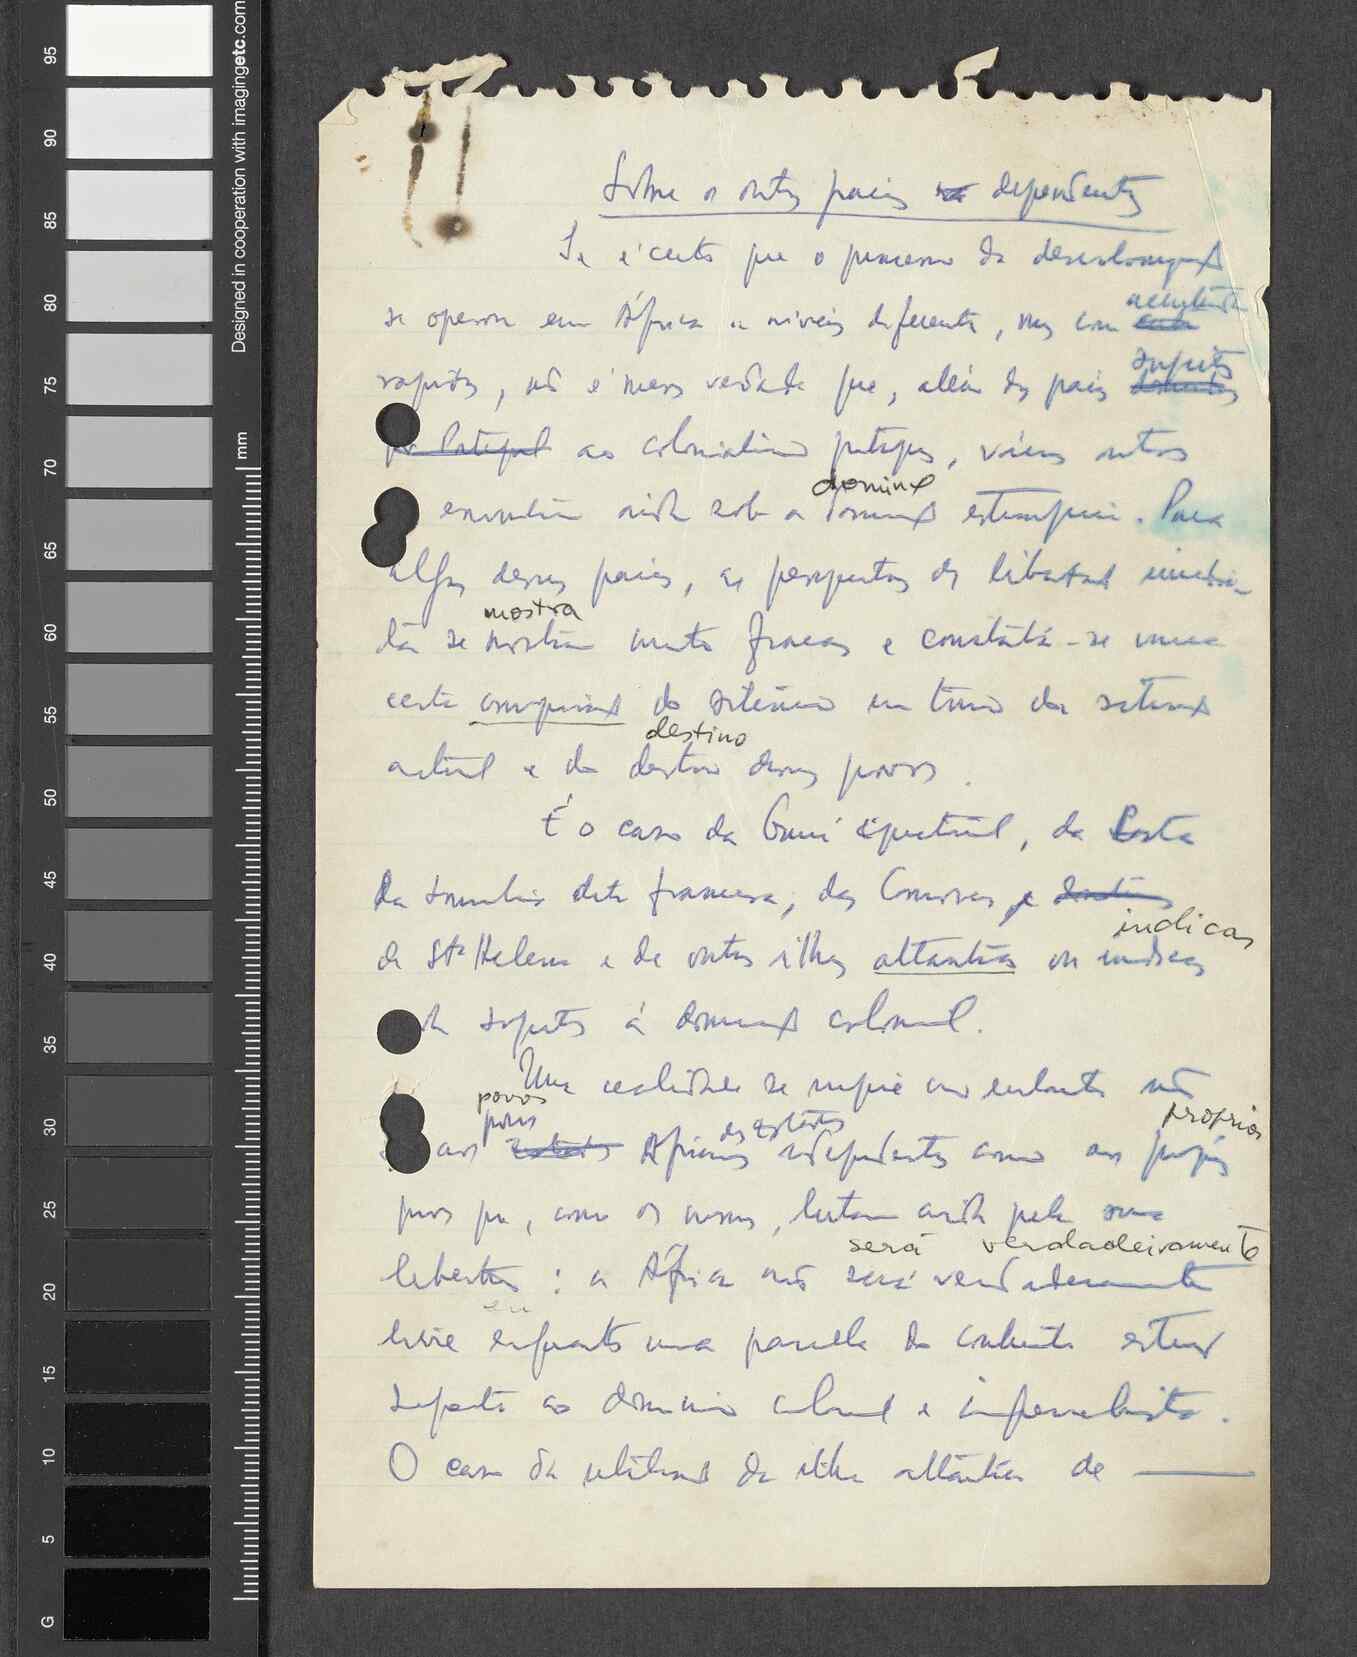 Designed in cooperation with imagingetc.com
mm
95
90
85
80
75
70
65
60
55
50
45
40
35
30
25
20
15
10
5
G
Sobre os outros países dependentes
Se é certo que o processo da descolonização
se operou em África a níveis diferentes, mas com
rapidez, não é menos verdade que, além dos países sujeitos
por Portugal ao colonialismo português, vários outros
domina
encontram ainda sob a dominação estrangeira. Para
alguns desses países, as perspectivas de libertação imedia-
mostra
ta se mostram muito fracas e constata-se uma
certa do silêncio em torno da situação
destino
actual e do destino desses povos.
É o caso da Guiné Equatorial, da Costa
da Somália dita francesa, das Comores, e
indicas
de Sta Helena e de outras ilhas atlânticas ou índicas
sujeitas à dominação colonial.
Uma realidade se impõe no entanto não
povos
povos dos Estados próprios
aos Estados Africanos independentes como aos próprios
povos que, como os nossos, lutam ainda pela sua
será verdadeiramente
libertação: a África não será verdadeiramente
en
livre enquanto uma parcela do continente estiver
sujeita ao domínio colonial e imperialista.
O caso da utilização da ilha atlântica de